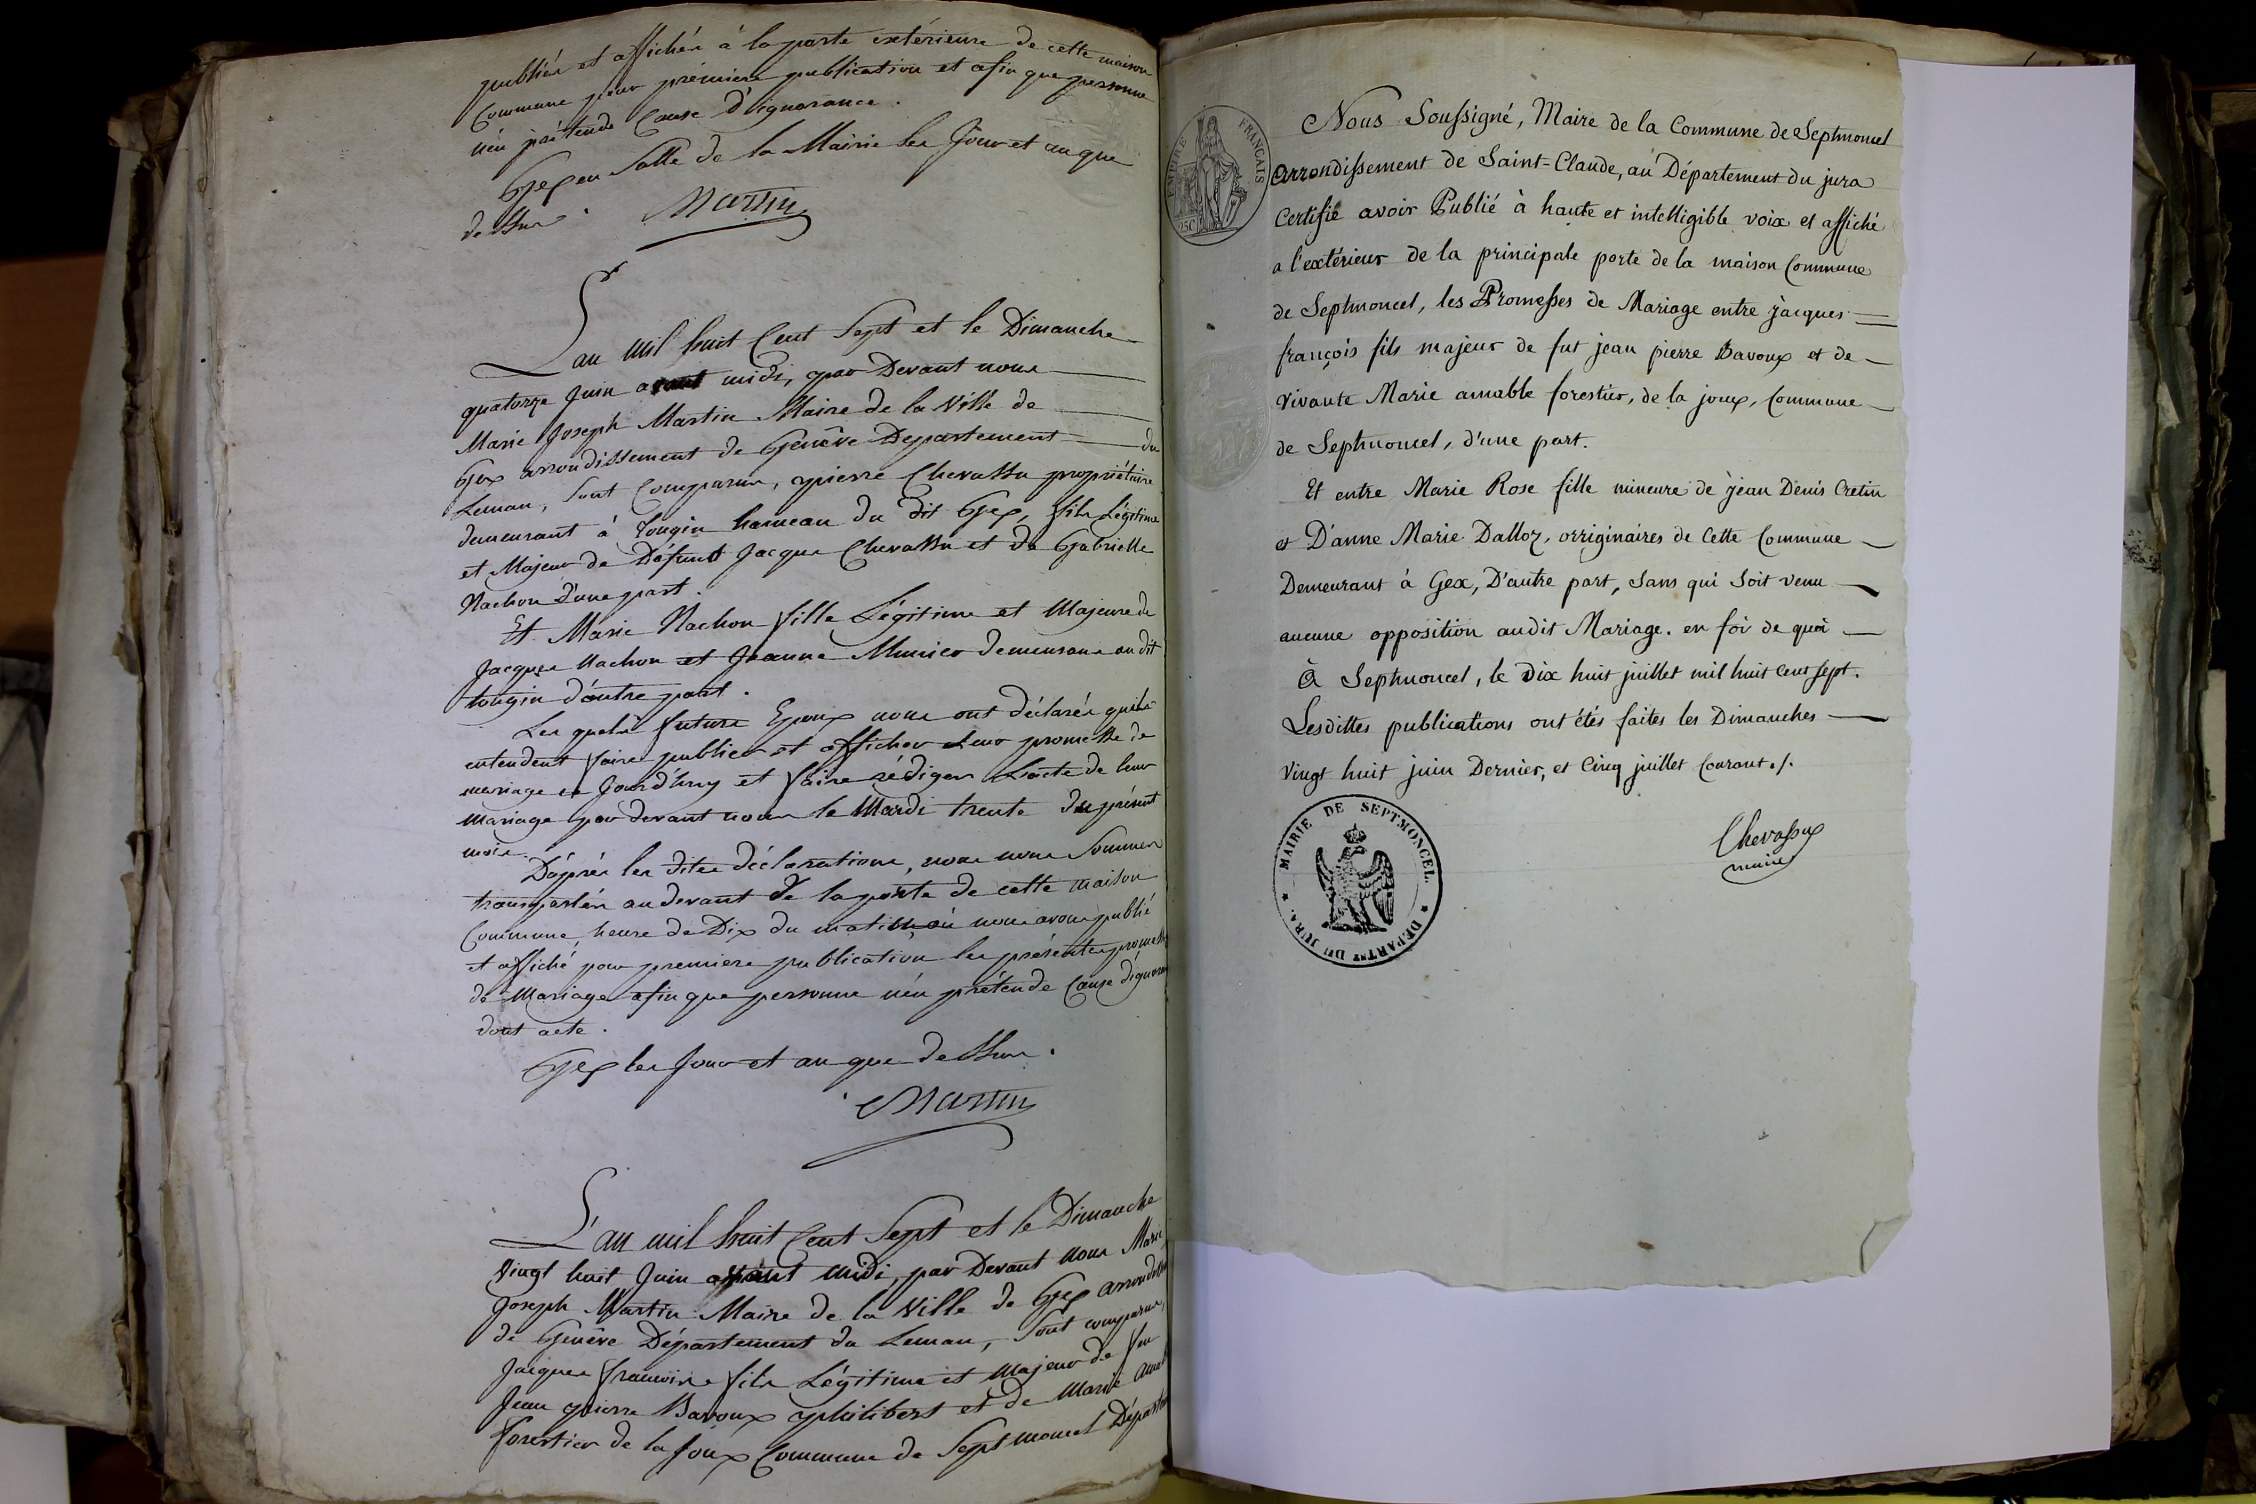 publiér et affichér à la porte extérieure de cette maison
Commune pour prémiere publication et afin que personne
n'en prétende Cause d'ignorance.
Gex en Salle de la Mairie les Jour et an que
dessus. Martin
L'an mil huit Cent Sept et le Dimanche
quatorze Juin avant midi, par Devant nous
Marie Joseph Martin Maire de la Ville de
Gex arrondissement de Genêve Departement du
Leman, Sont Comparus, pierre Chevassu propriétaire
demeurant à Tougin hameau du dit Gex, fils Légitime
et Majeur de Défunt Jacque Chevassu et de Gabrielle
Nachon D'une part.
Et Marie Nachon fille Légitime et Majeure de
Jacques Nachon et Jeanne Munier demeurans au dit
tougin d'autre part.
Les quels futurs Epoux nous ont déclarés qu'ils
entendent faire publier et afficher leur promesse de
mariage ce Jourd'huy et faire rédiger L'acte de leur
mariage par devant nous le Mardi trente du présent
mois.
D'après les dites déclarations, nous nous Sommes
transportés au devant de la porte de cette maison
Commune, heure de Dix du matin où nous avons publié
et affiché pour premiere publication les présentes promesses
de Mariage afin que personne n'en prétende Cause d'ignoran
dont acte.
Gex les Jour et an que dessus.
Martin
L'an mil huit Cent Sept et le Dimanche
Vingt huit Juin avant midi, par Devant nous Marie
Joseph Martin Maire de la Ville de Gex arrondiss
de Genêve Département du Leman, Sont comparus,
Jacques françois fils Légitime et Majeur de feu
Jean pierre Bavoux philibert et de Marie amab
forestier de la Joux Commune de Septmoncel Départem
EMPIRE FRANÇAIS
25C
Nous Soussigné, Maire de la Commune de Septmoncel
Arrondissement de Saint-Claude, au Département du jura
Certifie avoir Publié à haute et intelligible voix et affiché
a l'extérieur de la principale porte de la maison Commune
de Septmoncel, les Promesses de Mariage entre jacques
françois fils majeur de fut jean pierre Bavoux et de
vivante Marie amable forestier, de la joux, Commune
de Septmoncel, d'une part.
Et entre Marie Rose fille mineure de jean Denis Cretin
et D'anne Marie Dalloz, orriginaires de Cette Commune
Demeurant à Gex, D'autre part, Sans qui Soit venu
aucune opposition audit Mariage. en foi de quoi
À Septmoncel, le Dix huit juillet mil huit Cent Sept.
Lesdittes publications ont étés faites les Dimanches
Vingt huit juin Dernier, et Cinq juillet Courant./.
Chevassux
maire
MAIRIE DE SEPTMONCEL.
DÉPARTNT DU JURA.